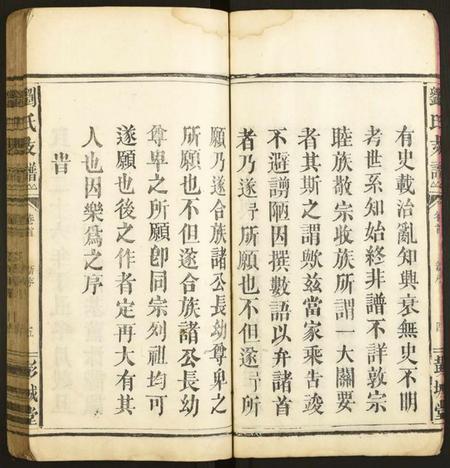 有史載治亂知興衰無史不明
考世系知始終非譜不詳敦宗
睦族散宗收族所謂一大關要
者其斯之謂歟茲當家乘告竣
不避譾陋因撰數語以弁諸首
者乃遂寻所願也不但遂寻所
願乃遂合族諸公長幼尊卑之
所願也不但遂合族諸公長幼
尊卑之所願即同宗列祖均可
遂願也後之作者定再大有其
人也因樂爲之序
旹
劉氏支譜
卷首
新序
五
彭城堂
劉氏支譜
卷首
四
彭城堂